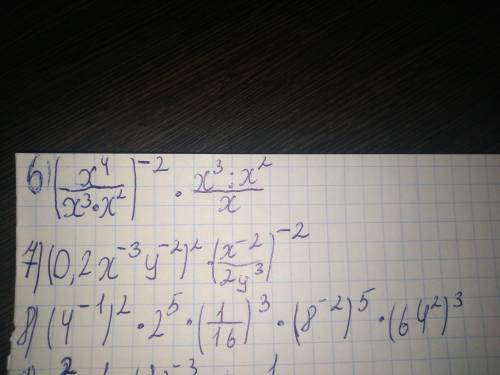 6) (x⁴/(x³·x²))⁻² · (x³:x²)/x
7) (0,2x⁻³y⁻²)² · (x⁻²/(2y³))⁻²
8) (4⁻¹)² · 2⁵ · (1/16)³ · (8⁻²)⁵ · (64²)³